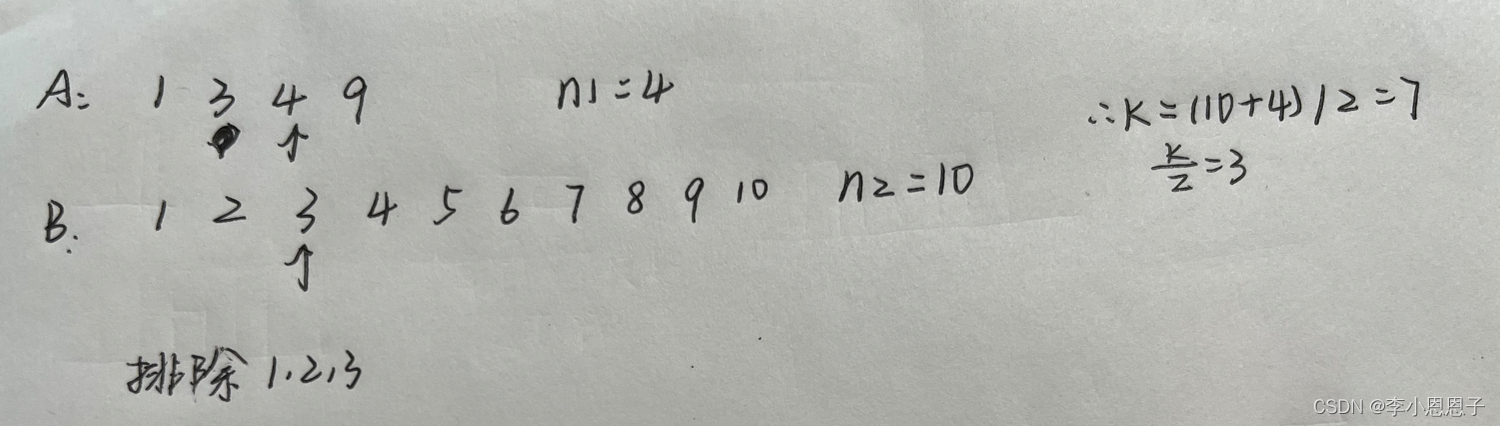 A: 1 3 4 9 n1=4
∴K=(10+4)/2=7
K/2=3
B. 1 2 3 4 5 6 7 8 9 10 n2=10
排除 1,2,3
CSDN @李小恩恩子